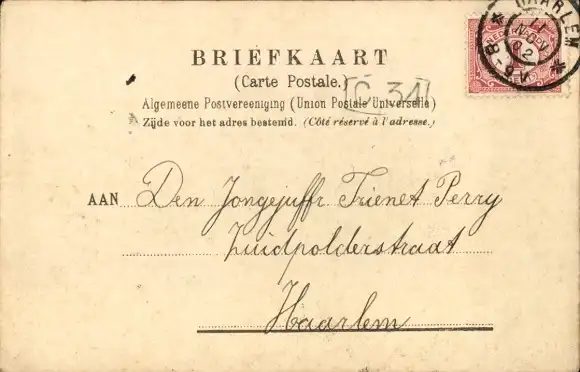 HAARLEM
11
NOV
02
8-9V
BRIEFKAART
(Carte Postale.)
C 34
Algemeene Postvereeniging (Union Postale Universelle)
Zijde voor het adres bestemd. (Côté réservé à l'adresse.)
AAN Den Jongejuffr. Trienet Perry
Zuidpolderstraat
Haarlem